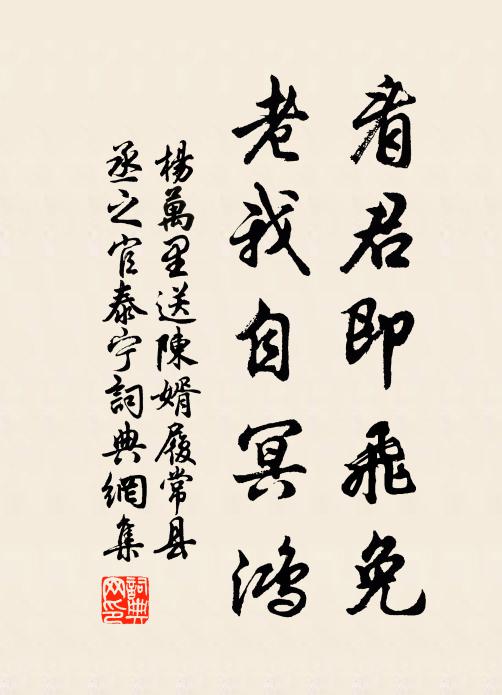 看君即飛免
老我自冥鴻
楊萬里送陳婿履常县
丞之官泰宁詞典網集
詞典
网印